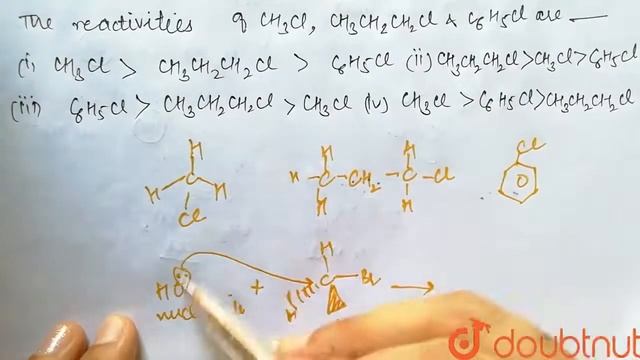 The reactivities of CH3Cl, CH3CH2CH2Cl & C6H5Cl are —
(i) CH3Cl > CH3CH2CH2Cl > C6H5Cl (ii) CH3CH2CH2Cl>CH3Cl>C6H5Cl
(iii) C6H5Cl > CH3CH2CH2Cl > CH3Cl (iv) CH3Cl > C6H5Cl>CH3CH2CH2Cl
H H H Cl
H C H H - C - CH2 - C - Cl
Cl H H
H
HO + C - Br
H
nucl
doubtnut